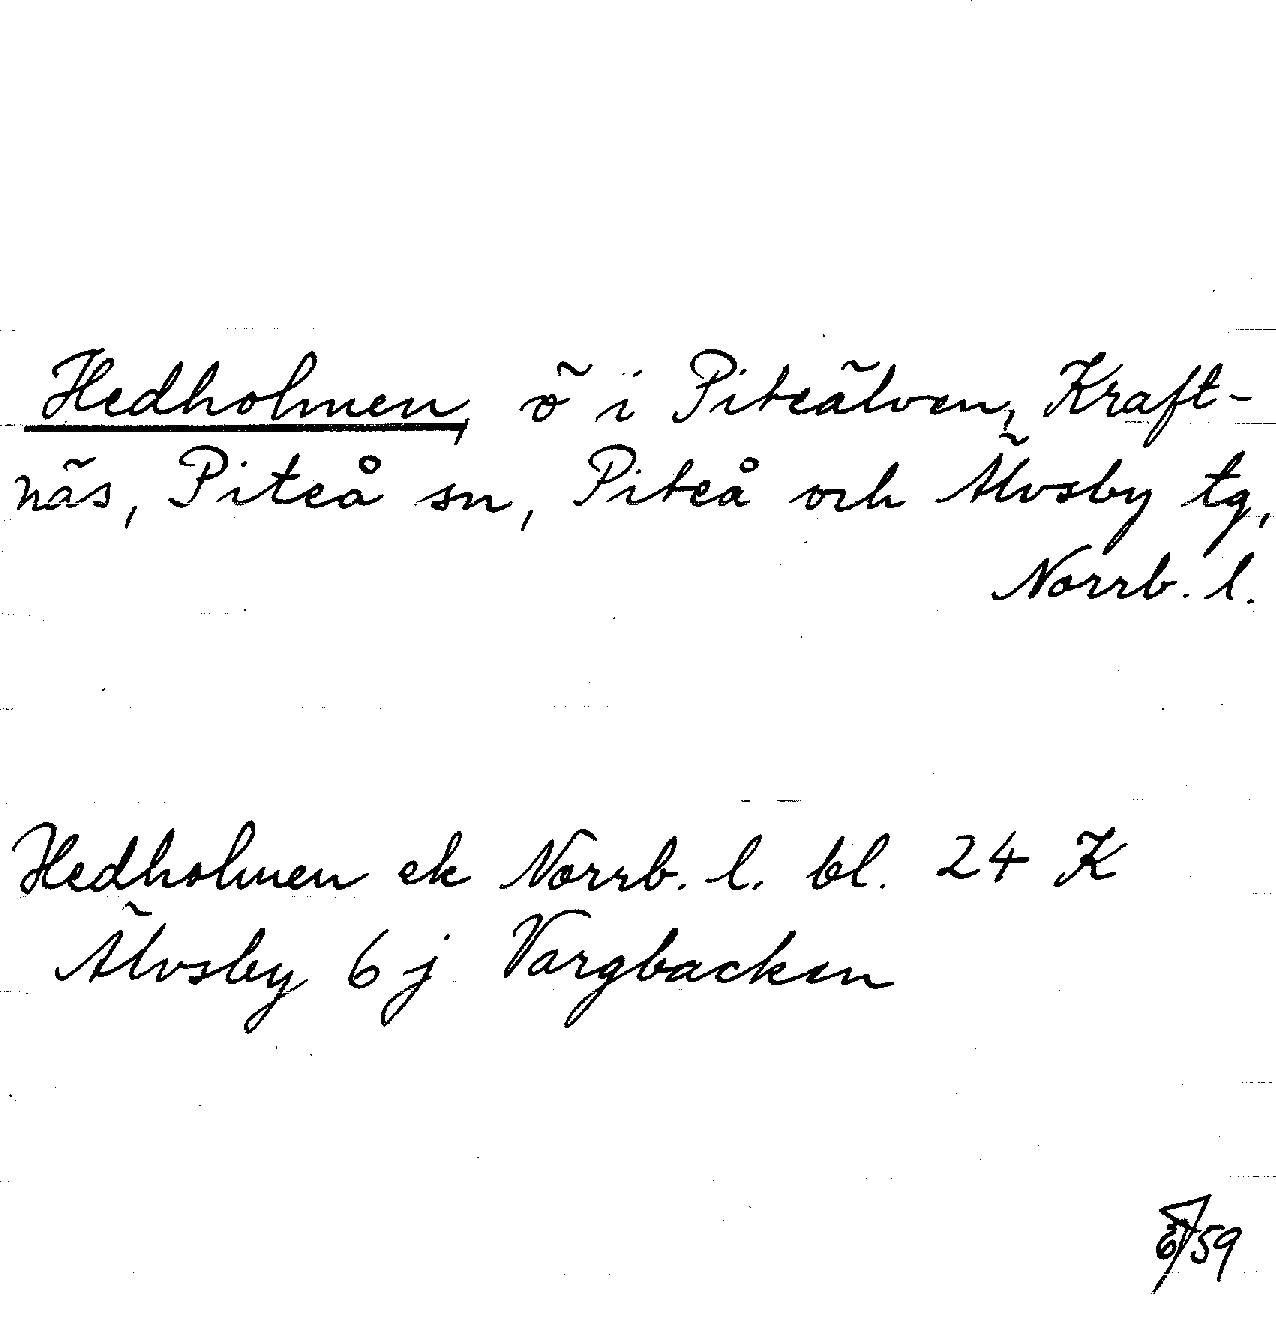 Hedholmen, ö i Piteälven, Kraft-
näs, Piteå sn, Piteå och Älvsby tg,
Norrb. l.
Hedholmen ek Norrb. l. bl. 24 K
Älvsby 6 j Vargbacken
59